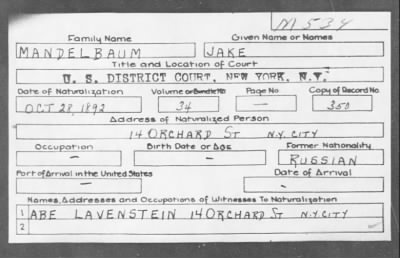 M 534
Family Name Given Name or Names
MANDELBAUM JAKE
Title and Location of Court
U. S. DISTRICT COURT, NEW YORK, N.Y.
Date of Naturalization Volume or Bundle No Page No Copy of Record No.
OCT 28, 1892 34 — 350
Address of Naturalized Person
14 ORCHARD ST N.Y. CITY
Occupation Birth Date or Age Former Nationality
— — RUSSIAN
Port of Arrival in the United States Date of Arrival
— —
Names, Addresses and Occupations of Witnesses To Naturalization
1 ABE LAVENSTEIN 14 ORCHARD ST N.Y. CITY
2